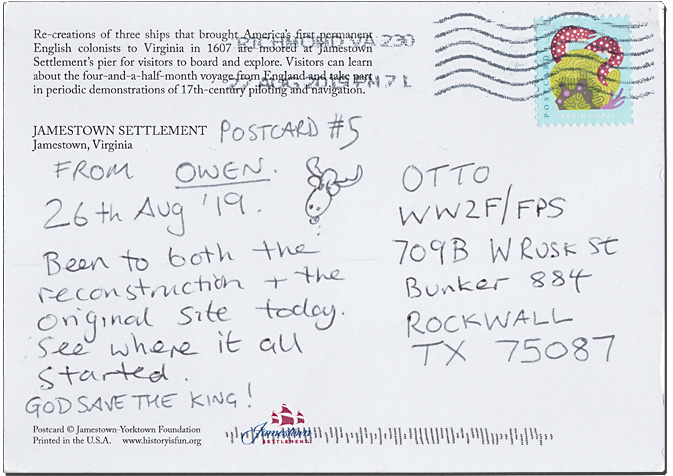 Re-creations of three ships that brought America's first permanent
English colonists to Virginia in 1607 are moored at Jamestown
Settlement's pier for visitors to board and explore. Visitors can learn
about the four-and-a-half-month voyage from England and take part
in periodic demonstrations of 17th-century piloting and navigation.
RICHMOND VA 230
27 AUG 2019 PM 7 L
POSTCARD
BRAIN CORAL
JAMESTOWN SETTLEMENT
Jamestown, Virginia
POSTCARD #5
FROM OWEN.
26th Aug '19.
Been to both the
reconstruction + the
original site today.
See where it all
started.
GOD SAVE THE KING!
OTTO
WW2F/FPS
709B W RUSK St
Bunker 884
ROCKWALL
TX 75087
Postcard © Jamestown-Yorktown Foundation
Printed in the U.S.A. www.historyisfun.org
Jamestown
SETTLEMENT